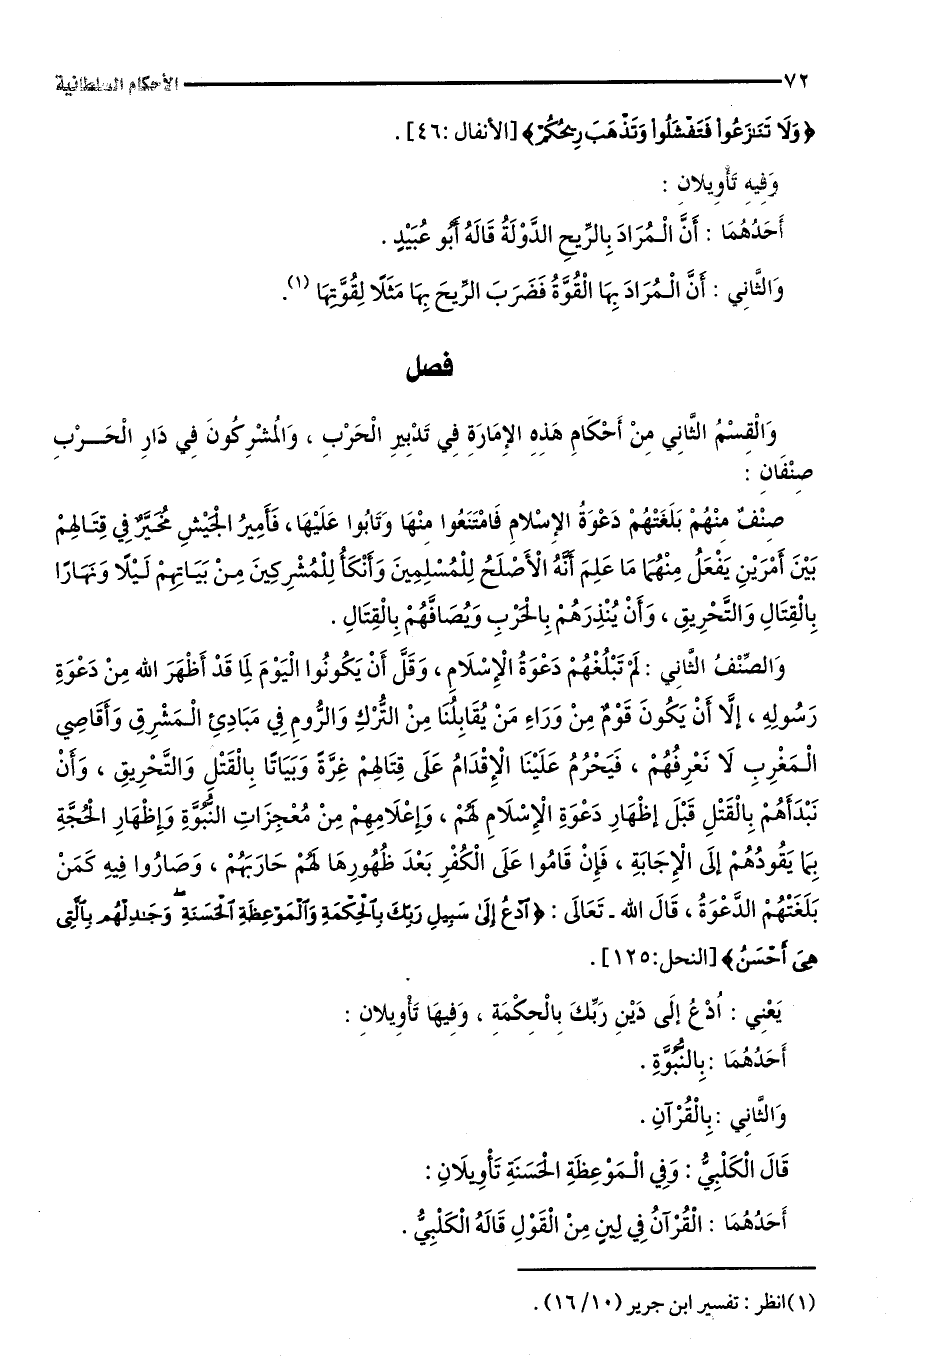 ٧٢ الأحكام السلطانية
﴿وَلَا تَنَازَعُوا فَتَفْشَلُوا وَتَذْهَبَ رِيحُكُمْ﴾ [الأنفال :٤٦] .
وَفِيهِ تَأْوِيلانِ :
أَحَدُهُمَا : أَنَّ الْمُرَادَ بِالرِّيحِ الدَّوْلَةُ قَالَهُ أَبُو عُبَيْدٍ .
وَالثَّانِي : أَنَّ الْمُرَادَ بِهَا الْقُوَّةُ فَضَرَبَ الرِّيحَ بِهَا مَثَلًا لِقُوَّتِهَا (١).
فصل
وَالْقِسْمُ الثَّانِي مِنْ أَحْكَامِ هَذِهِ الإِمَارَةِ فِي تَدْبِيرِ الْحَرْبِ ، وَالْمُشْرِكُونَ فِي دَارِ الْحَرْبِ
صِنْفَانِ :
صِنْفٌ مِنْهُمْ بَلَغَتْهُمْ دَعْوَةُ الإِسْلامِ فَامْتَنَعُوا مِنْهَا وَتَابُوا عَلَيْهَا، فَأَمِيرُ الْجَيْشِ مُخَيَّرٌ فِي قِتَالِهِمْ
بَيْنَ أَمْرَيْنِ يَفْعَلُ مِنْهُمَا مَا عَلِمَ أَنَّهُ الْأَصْلَحُ لِلْمُسْلِمِينَ وَأَنْكَأُ لِلْمُشْرِكِينَ مِنْ بَيَاتِهِمْ لَيْلًا وَنَهَارًا
بِالْقِتَالِ وَالتَّحْرِيقِ ، وَأَنْ يُنْذِرَهُمْ بِالْحَرْبِ وَيُصَافَّهُمْ بِالْقِتَالِ .
وَالصِّنْفُ الثَّانِي : لَمْ تَبْلُغْهُمْ دَعْوَةُ الْإِسْلَامِ ، وَقَلَّ أَنْ يَكُونُوا الْيَوْمَ لِمَا قَدْ أَظْهَرَ الله مِنْ دَعْوَةِ
رَسُولِهِ ، إلَّا أَنْ يَكُونَ قَوْمٌ مِنْ وَرَاءِ مَنْ يُقَابِلُنَا مِنْ التُّرْكِ وَالرُّومِ فِي مَبَادِئِ الْمَشْرِقِ وَأَقَاصِي
الْمَغْرِبِ لَا نَعْرِفُهُمْ ، فَيَحْرُمُ عَلَيْنَا الْإِقْدَامُ عَلَى قِتَالِهِمْ غِرَّةً وَبَيَاتًا بِالْقَتْلِ وَالتَّحْرِيقِ ، وَأَنْ
نَبْدَأَهُمْ بِالْقَتْلِ قَبْلَ إظْهَارِ دَعْوَةِ الْإِسْلَامِ لَهُمْ ، وَإِعْلَامِهِمْ مِنْ مُعْجِزَاتِ النُّبُوَّةِ وَإِظْهَارِ الْحُجَّةِ
بِمَا يَقُودُهُمْ إلَى الْإِجَابَةِ ، فَإِنْ قَامُوا عَلَى الْكُفْرِ بَعْدَ ظُهُورِهَا لَهُمْ حَارَبَهُمْ ، وَصَارُوا فِيهِ كَمَنْ
بَلَغَتْهُمْ الدَّعْوَةُ ، قَالَ الله ـ تَعَالَى : ﴿ ٱدْعُ إِلَىٰ سَبِيلِ رَبِّكَ بِٱلْحِكْمَةِ وَٱلْمَوْعِظَةِ ٱلْحَسَنَةِ ۖ وَجَـٰدِلْهُم بِٱلَّتِى
هِىَ أَحْسَنُ ﴾ [النحل:١٢٥] .
يَعْنِي : اُدْعُ إلَى دَيْنِ رَبِّكَ بِالْحِكْمَةِ ، وَفِيهَا تَأْوِيلانِ :
أَحَدُهُمَا : بِالنُّبُوَّةِ .
وَالثَّانِي : بِالْقُرْآنِ .
قَالَ الْكَلْبِيُّ : وَفِي الْمَوْعِظَةِ الْحَسَنَةِ تَأْوِيلَانِ :
أَحَدُهُمَا : الْقُرْآنُ فِي لِينٍ مِنْ الْقَوْلِ قَالَهُ الْكَلْبِيُّ .
(١)انظر : تفسير ابن جرير (١٠/ ١٦) .